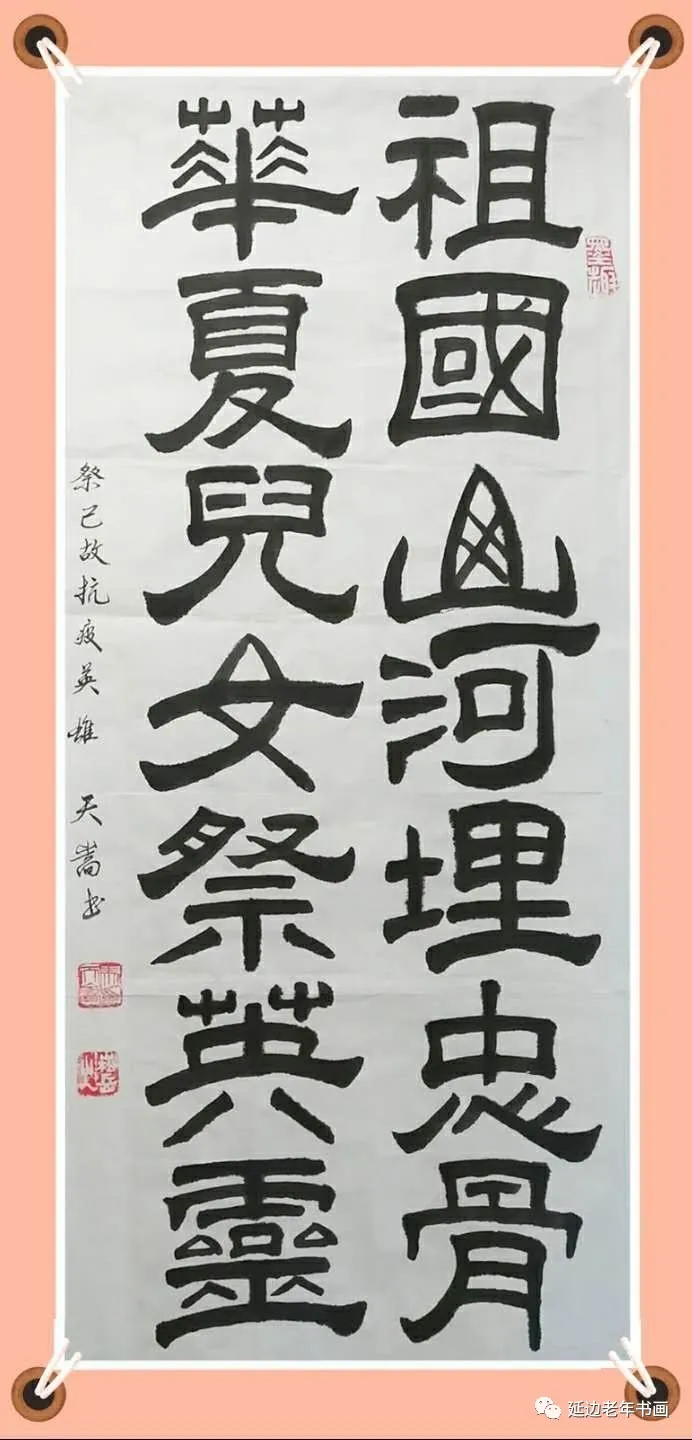 祖國山河埋忠骨
華夏兒女祭英靈
祭已故抗疫英雄 天嵩书
延边老年书画